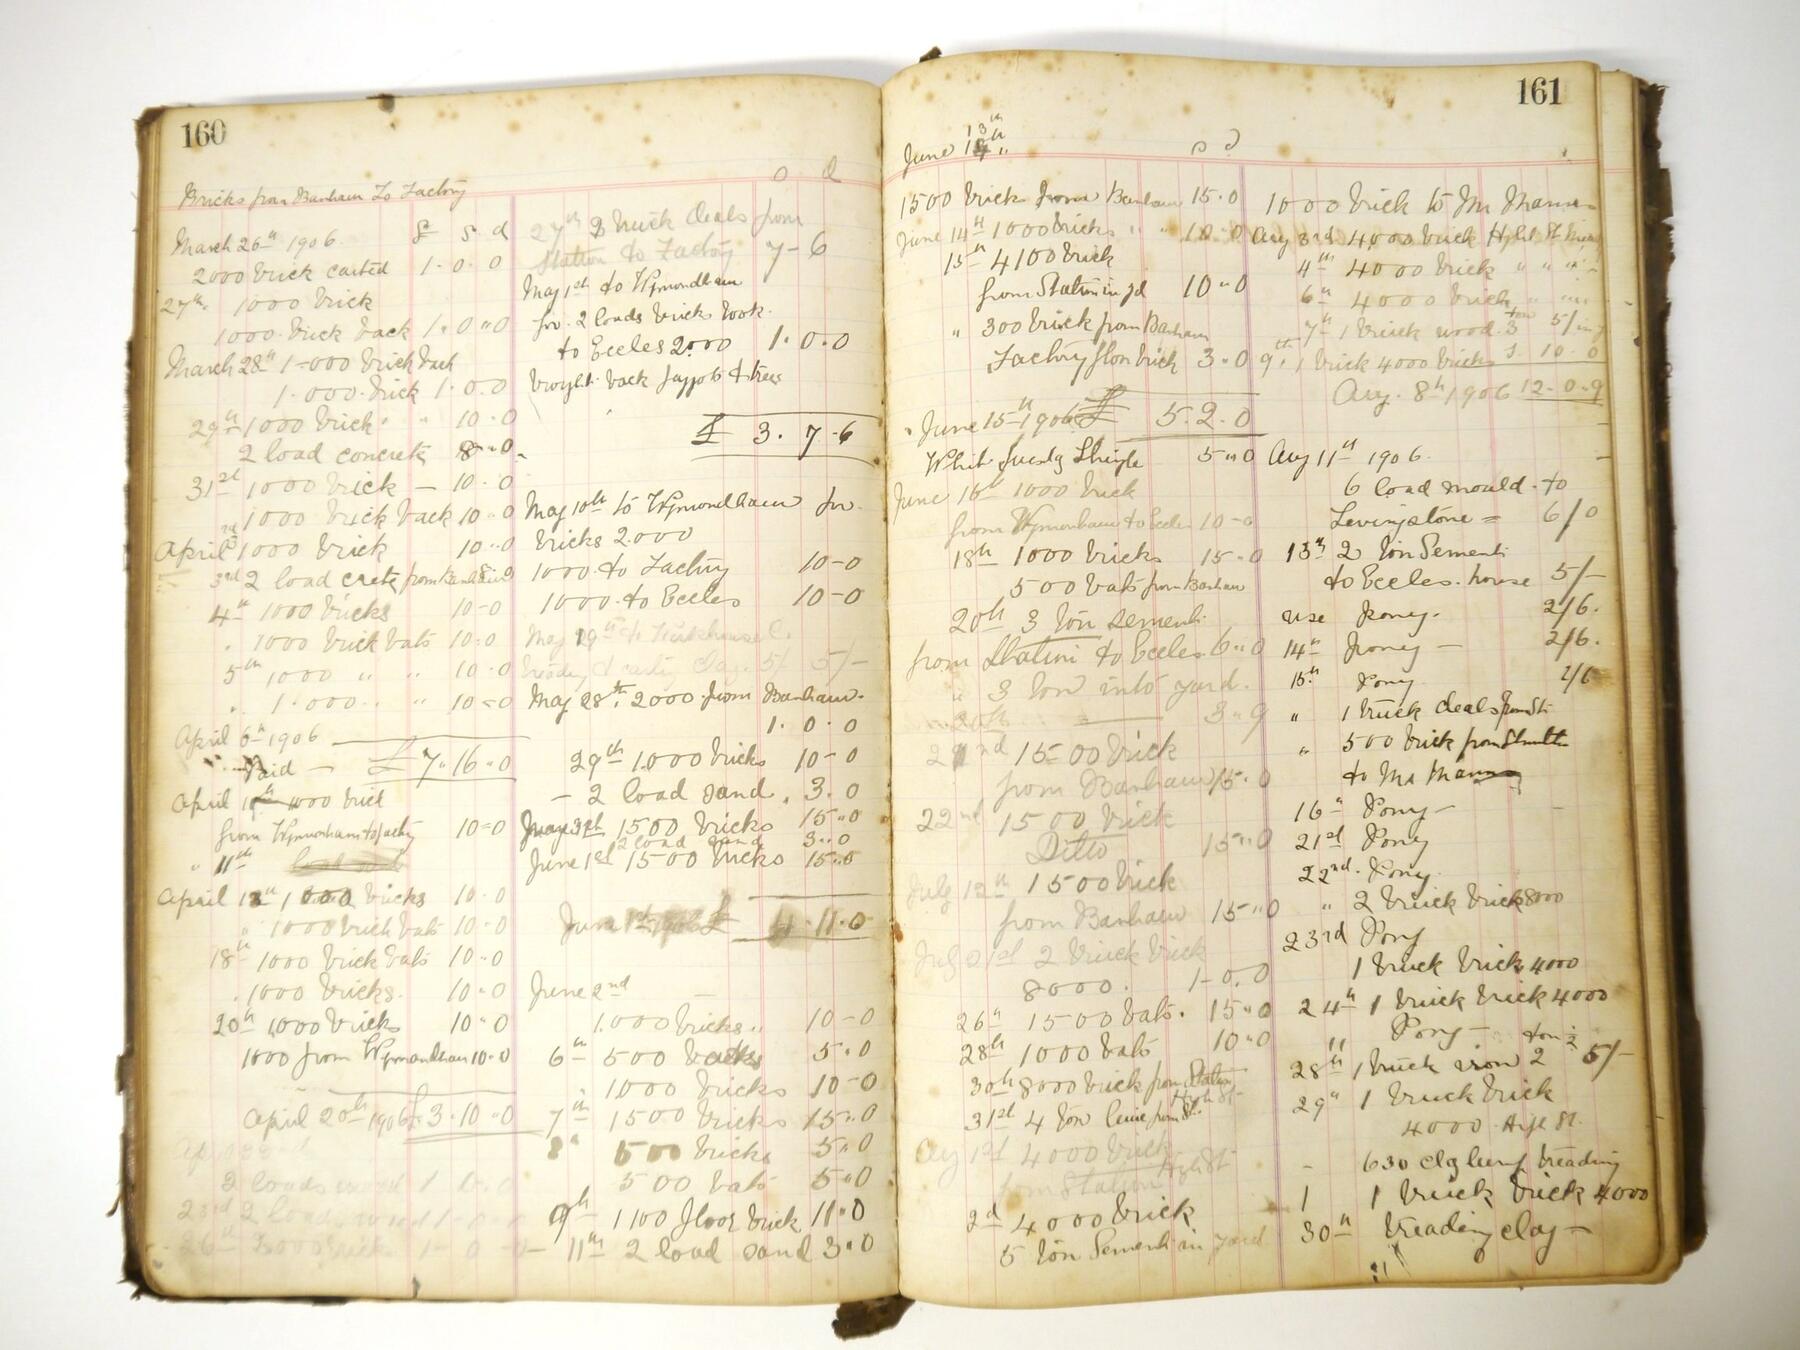 160
Bricks from Banham To Factory
March 26th 1906. £ s d
2000 brick carted 1-0-0
27th 1000 brick
1000 brick back 1"0"0
March 28th 1-000 brick back
1-000 brick 1-0-0
29th 1000 brick " 10-0
2 load concrete 8-0
31st 1000 brick — 10-0
1000 brick back 10-0
April 1000 brick 10-0
3rd 2 load crete from Banham 8-0
4th 1000 bricks 10-0
" 1000 brick bats 10-0
5th 1000 " " 10-0
" 1-000 " " 10-0
April 6th 1906
Paid — £7"16"0
April 1000 brick
from Wymonham to facty 10-0
" 11th
April 12th 1000 bricks 10-0
" 1000 brick bats 10-0
18th 1000 brick bats 10-0
" 1000 bricks 10"0
20th 1000 bricks 10"0
1000 from Wymondham 10-0
April 20th 1906 £3-10-0
2 loads 1-0-0
23rd 2 loads 1-0-0
26th brick 1-0-0
s d
27th 2 truck deals from
Station to Factory 7-6
May 1st to Wymondham
for 2 loads bricks took
to Eccles 2000 1-0-0
brought back & trees
£ 3.7-6
May 10th to Wymondham for
bricks 2.000
1000 to Factory 10-0
1000 to Eccles 10-0
May 19th to
treading & carting clay 5/ 5/-
May 28th 2000 from Banham.
1.0.0
29th 1.000 bricks 10-0
— 2 load sand 3.0
May 31st 1500 bricks 15"0
2 load sand 3"0
June 1st 1500 bricks 15"0
June 1st 1906 £ 4-11-0
June 2nd —
1.000 bricks " 10-0
6th 500 bricks 5"0
" 1000 bricks 10-0
7th 1500 bricks 15"0
8th 500 bricks 5"0
500 bats 5"0
9th 1100 floor brick 11"0
11th 2 load sand 3"0
161
June 13th "
s d
1500 bricks from Banham 15.0
June 14th 1000 bricks " " 10-0
15th 4100 brick
from Station in yd 10"0
" 300 brick from Banham
Factory floor brick 3"0
June 15th 1906 £ 5.2.0
Whit Tuesdy Shingle 5"0
June 16th 1000 brick
from Wymonham to Eccles 10-0
18th 1000 bricks 15-0
500 bats from Banham
20th 3 ton sement
from Station to Eccles 6"0
" 3 ton into yard.
3"9
22nd 15-00 brick
from Banham 15.0
22nd 1500 brick
Ditto 15"0
July 12th 1500 brick
from Banham 15"0
July 21st 2 truck brick
8000. 1-0.0
26th 1500 bats. 15"0
28th 1000 bats 10"0
30th 8000 brick from Station
High St
31st 4 ton lime from St.
Aug 1st 4000 brick
from Station High St
2nd 4000 brick
5 ton Sement in yard
1000 brick to Mr Mann
Aug 3rd 4000 brick High St
4th 4000 brick " " "
6th 4000 brick " " "
7th 1 truck wood 3 ton 5/
9th 1 brick 4000 bricks 10-0
Aug. 8th 1906 12-0-9
Aug 11th 1906.
6 load mould to
Levingstone = 6/0
13th 2 ton Sement
to Eccles. house 5/-
use Pony. 2/6.
14th Pony — 2/6.
15th Pony 2/6
" 1 truck deals from St
" 500 brick from
to Mr Mann
16th Pony —
21st Pony
22nd Pony
" 2 truck brick 8000
23rd Pony
1 truck brick 4000
24th 1 truck brick 4000
" Pony —
28th 1 truck iron 2 ton ½ 5/-
29th 1 truck brick
4000 High St.
- 630 treading
1 1 truck brick 4000
30th treading clay —